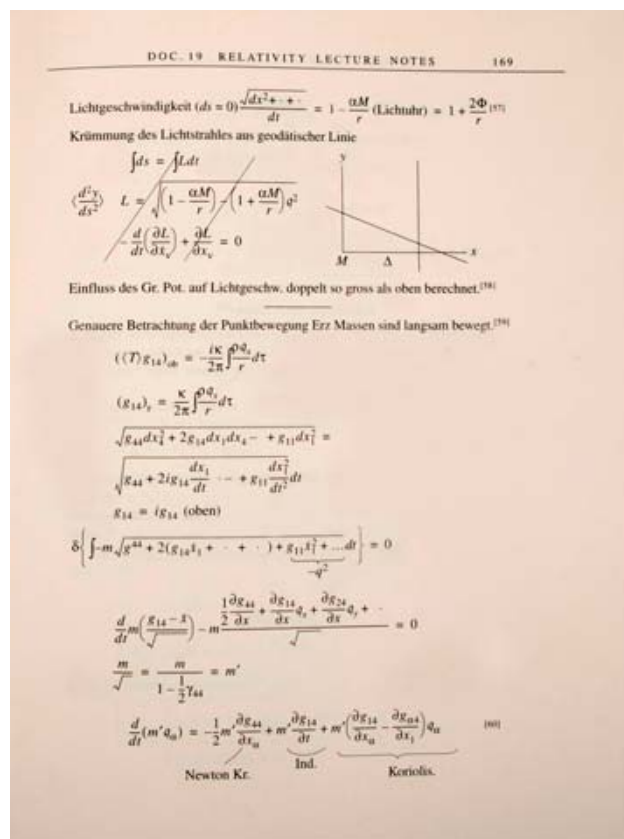 DOC. 19 RELATIVITY LECTURE NOTES 169
Lichtgeschwindigkeit (ds = 0) √(dx² + · + ·)/dt = 1 − αM/r (Lichtuhr) = 1 + 2Φ/r [57]
Krümmung des Lichtstrahles aus geodätischer Linie
∫ds = ∫Ldt
⟨d²y/ds²⟩ L = √((1 − αM/r) − (1 + αM/r)q²)
− d/dt(∂L/∂ẋ_ν) + ∂L/∂x_ν = 0
y
x
M Δ
Einfluss des Gr. Pot. auf Lichtgeschw. doppelt so gross als oben berechnet.[58]
Genauere Betrachtung der Punktbewegung Erz Massen sind langsam bewegt.[59]
(⟨T⟩g₁₄)_ob = −iκ/2π ∫ρq_x/r dτ
(g₁₄)_r = κ/2π ∫ρq_x/r dτ
√(g₄₄dx₄² + 2g₁₄dx₁dx₄ − + g₁₁dx₁²) =
√(g₄₄ + 2ig₁₄ dx₁/dt ·− + g₁₁ dx₁²/dt²) dt
g₁₄ = ig₁₄ (oben)
δ{∫−m√(g⁴⁴ + 2(g₁₄ẋ₁ + · + ·) + g₁₁ẋ₁² + ...)dt} = 0
−q²
d/dt m((g₁₄ − ẋ)/√) − m(½ ∂g₄₄/∂x + ∂g₁₄/∂x q_x + ∂g₂₄/∂x q_y + ·)/√ = 0
m/√ = m/(1 − ½γ₄₄) = m′
d/dt(m′q_α) = −½m′ ∂g₄₄/∂x_α + m′ ∂g₁₄/∂t + m′(∂g₁₄/∂x_α − ∂g_α₄/∂x₁)q_α [60]
Newton Kr. Ind. Koriolis.